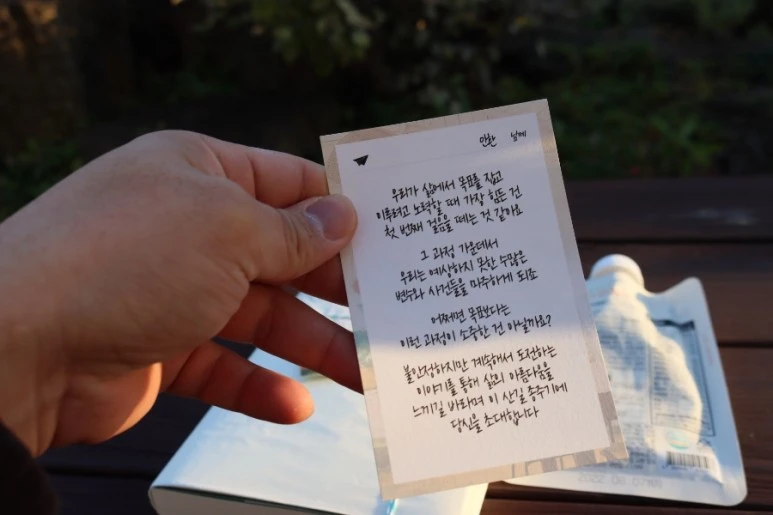 날에
우리가 삶에서 목표를 잡고
이루려고 노력할 때 가장 힘든 건
첫 번째 걸음을 떼는 것 같아요
그 과정 가운데서
우리는 예상하지 못한 수많은
변수와 사건들을 마주하게 되죠
어쩌면 목표보다는
이런 과정이 소중한 건 아닐까요?
불안정하지만 계속해서 도전하는
이야기를 통해 삶의 아름다움을
느끼길 바라며 이 산길 종주기에
당신을 초대합니다